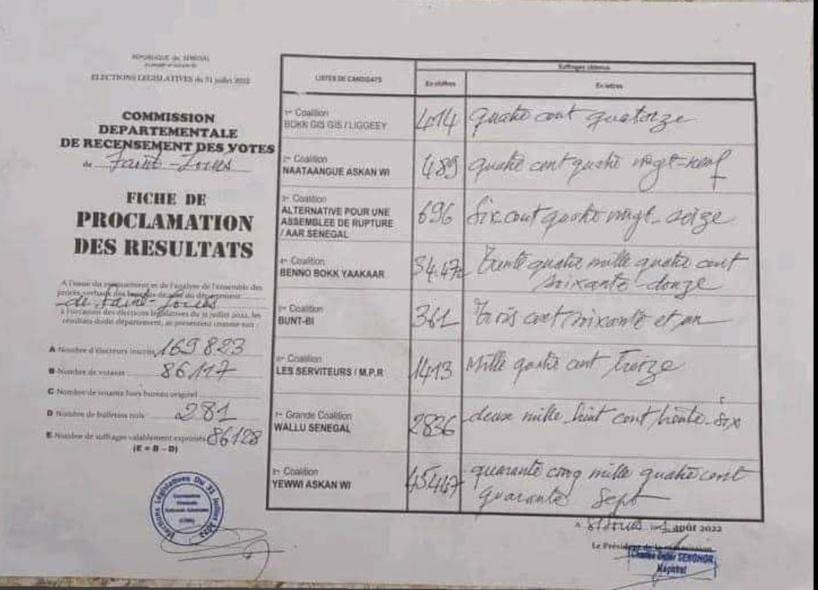 REPUBLIQUE du SENEGAL
ELECTIONS LEGISLATIVES du 31 juillet 2022
COMMISSION
DEPARTEMENTALE
DE RECENSEMENT DES VOTES
de Saint-Louis
FICHE DE
PROCLAMATION
DES RESULTATS
A l'issue du recensement et de l'analyse de l'ensemble des
procès-verbaux des bureaux de vote du département
de Saint-Louis
à l'occasion des élections législatives du 31 juillet 2022, les
résultats dudit département, se présentent comme suit :
A Nombre d'électeurs inscrits 169 823
B Nombre de votants 86117
C Nombre de votants hors bureau originel
D Nombre de bulletins nuls 281
E Nombre de suffrages valablement exprimés 86128
(E = B - D)
Elections Législatives Du 31 Juillet 2022
LISTES DE CANDIDATS
Suffrages obtenus
En chiffres
En lettres
Coalition
BOKK GIS GIS / LIGGEEY
414
quatre cent quatorze
Coalition
NAATAANGUE ASKAN WI
489
quatre cent quatre vingt-neuf
Coalition
ALTERNATIVE POUR UNE
ASSEMBLEE DE RUPTURE
/ AAR SENEGAL
696
Six cent quatre vingt-seize
Coalition
BENNO BOKK YAAKAAR
34.472
Trente quatre mille quatre cent
soixante-douze
Coalition
BUNT-BI
361
Trois cent soixante et un
Coalition
LES SERVITEURS / M.P.R
1413
Mille quatre cent Treize
Grande Coalition
WALLU SENEGAL
2836
deux mille huit cent trente-six
Coalition
YEWWI ASKAN WI
45447
quarante cinq mille quatre cent
quarante Sept
A St Louis août 2022
Le Président de la commission
SENGHOR
Magistrat